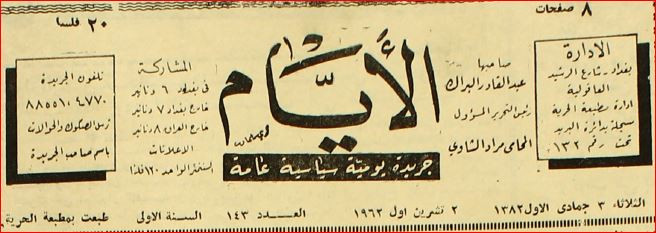 ٨ صفحات
٢٠ فلسا
الادارة
بغداد ـ شارع الرشيد
العاقولية
ادارة مطبعة الحرية
سجلت بدائرة البريد
تحت رقم ١٣٢
صاحبها
عبد القادر البراك
رئيس التحرير المسؤول
المحامي مراد الشاوي
الأيام
جريدة يومية سياسية عامة
المشاركة
في بغداد ٦ دنانير
خارج بغداد ٧ دنانير
خارج العراق ٨ دنانير
الاعلانات
السنتمتر الواحد ١٢٠ فلسا
تلفون الجريدة
٨٨٥٥١٠٤٧٧٠
ترسل الصكوك والحوالات
باسم صاحب الجريدة
الثلاثاء ٣ جمادى الاول ١٣٨٢ ٢ تشرين اول ١٩٦٢ العـــدد ١٤٣ السنة الاولى طبعت بمطبعة الحرية